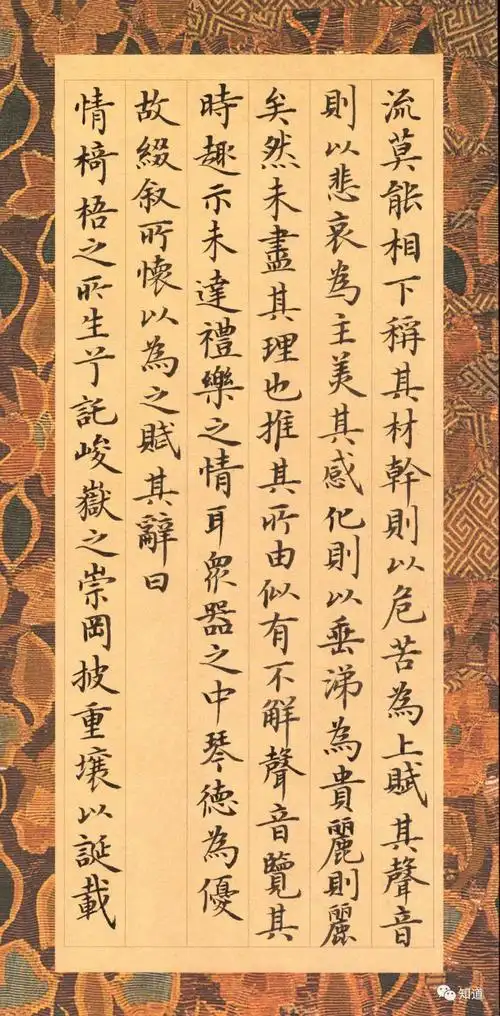 流莫能相下稱其材幹則以危苦為上賦其聲音
則以悲哀為主美其感化則以垂涕為貴麗則麗
矣然未盡其理也推其所由似有不解聲音覽其
時趣示未達禮樂之情耳衆器之中琴德為優
故綴叙所懷以為之賦其辭曰
情椅梧之所生兮託峻嶽之崇岡披重壤以誕載
知道